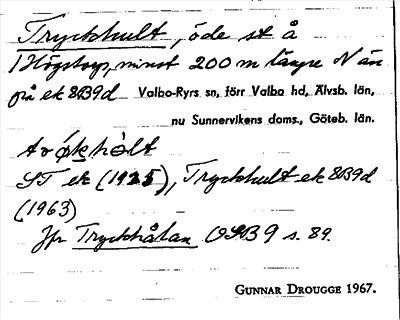 Tryckhult, öde st å
Högstorp, minst 200 m längre N än
på ek 8B9d Valbo-Ryrs sn, förr Valbo hd, Älvsb. län,
nu Sunnervikens doms., Göteb. län.
tr
ST ek (1925), Tryckhult ek 8B9d
(1963)
Jfr Tryckhålan OSB 9 s. 89.
GUNNAR DROUGGE 1967.